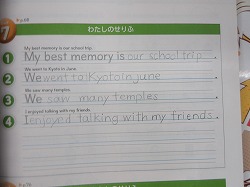 7
わたしのせりふ
My best memory is our school trip.
1 My best memory is our school trip
We went to Kyoto in June.
2 We went to Kyoto in june
We saw many temples.
3 We saw many temples
I enjoyed talking with my friends.
4 I enjoyed talking with my friends.